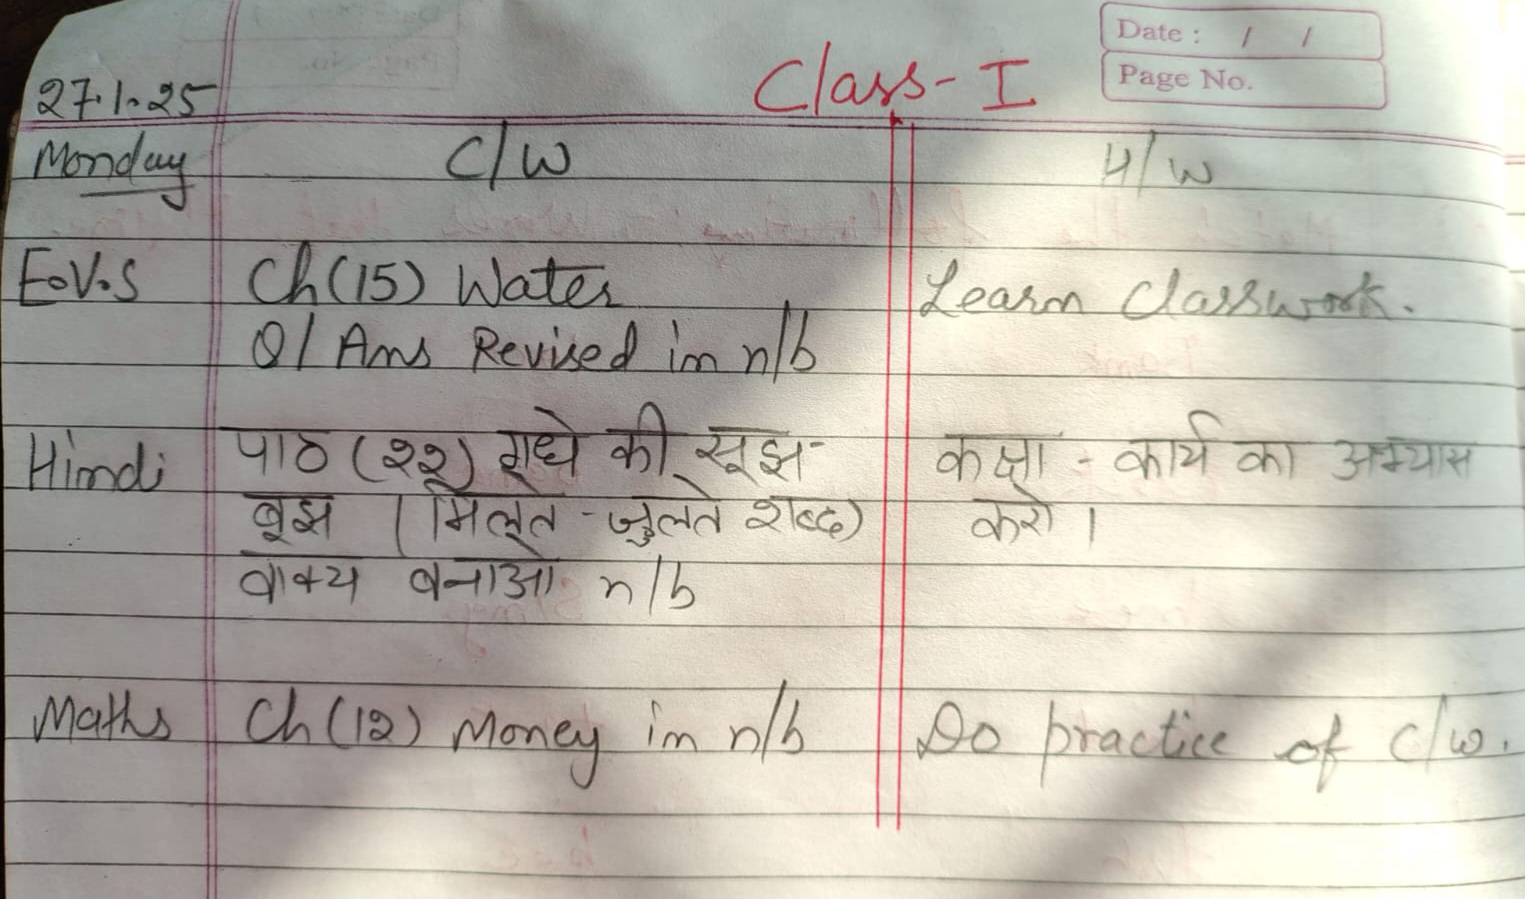 Date : / /
Page No.
Class-I
27.1.25
Monday C/W H/W
E.V.S Ch(15) Water Learn Classwork.
Q/Ans Revised in n/b
Hindi पाठ (२२) गधे की सूझ- कक्षा - कार्य का अभ्यास
बूझ (मिलते-जुलते शब्द) करो।
वाक्य बनाओ n/b
Maths Ch(12) Money in n/b Do practice of c/w.